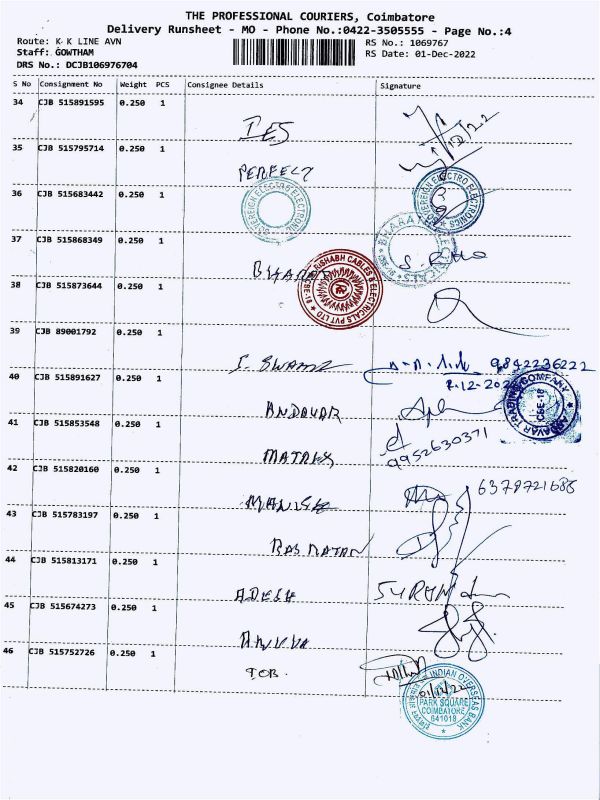 THE PROFESSIONAL COURIERS, Coimbatore
Delivery Runsheet - MO - Phone No.:0422-3505555 - Page No.:4
Route: K K LINE AVN
Staff: GOWTHAM
DRS No.: DCJB106976704
RS No.: 1069767
RS Date: 01-Dec-2022
S No Consignment No Weight PCS Consignee Details Signature
34 CJB 515891595 0.250 1
IES
35 CJB 515795714 0.250 1
PERFECT
36 CJB 515683442 0.250 1
SOVEREIGN ELECTRO ELECTRONICS
SOVEREIGN ELECTRO ELECTRONICS
37 CJB 515868349 0.250 1
BHARAT
38 CJB 515873644 0.250 1
RISHABH CABLES & ELECTRICALS PVT LTD
39 CJB 89001792 0.250 1
9842236222
40 CJB 515891627 0.250 1
ANDAVAR
ANDAVAR TRADING COMPANY
41 CJB 515853548 0.250 1
MATREX
9952630371
42 CJB 515820160 0.250 1
MANISH
43 CJB 515783197 0.250 1
44 CJB 515813171 0.250 1
ADESH
45 CJB 515674273 0.250 1
46 CJB 515752726 0.250 1
IOB.
INDIAN OVERSEAS BANK
PARK SQUARE
COIMBATORE
641018